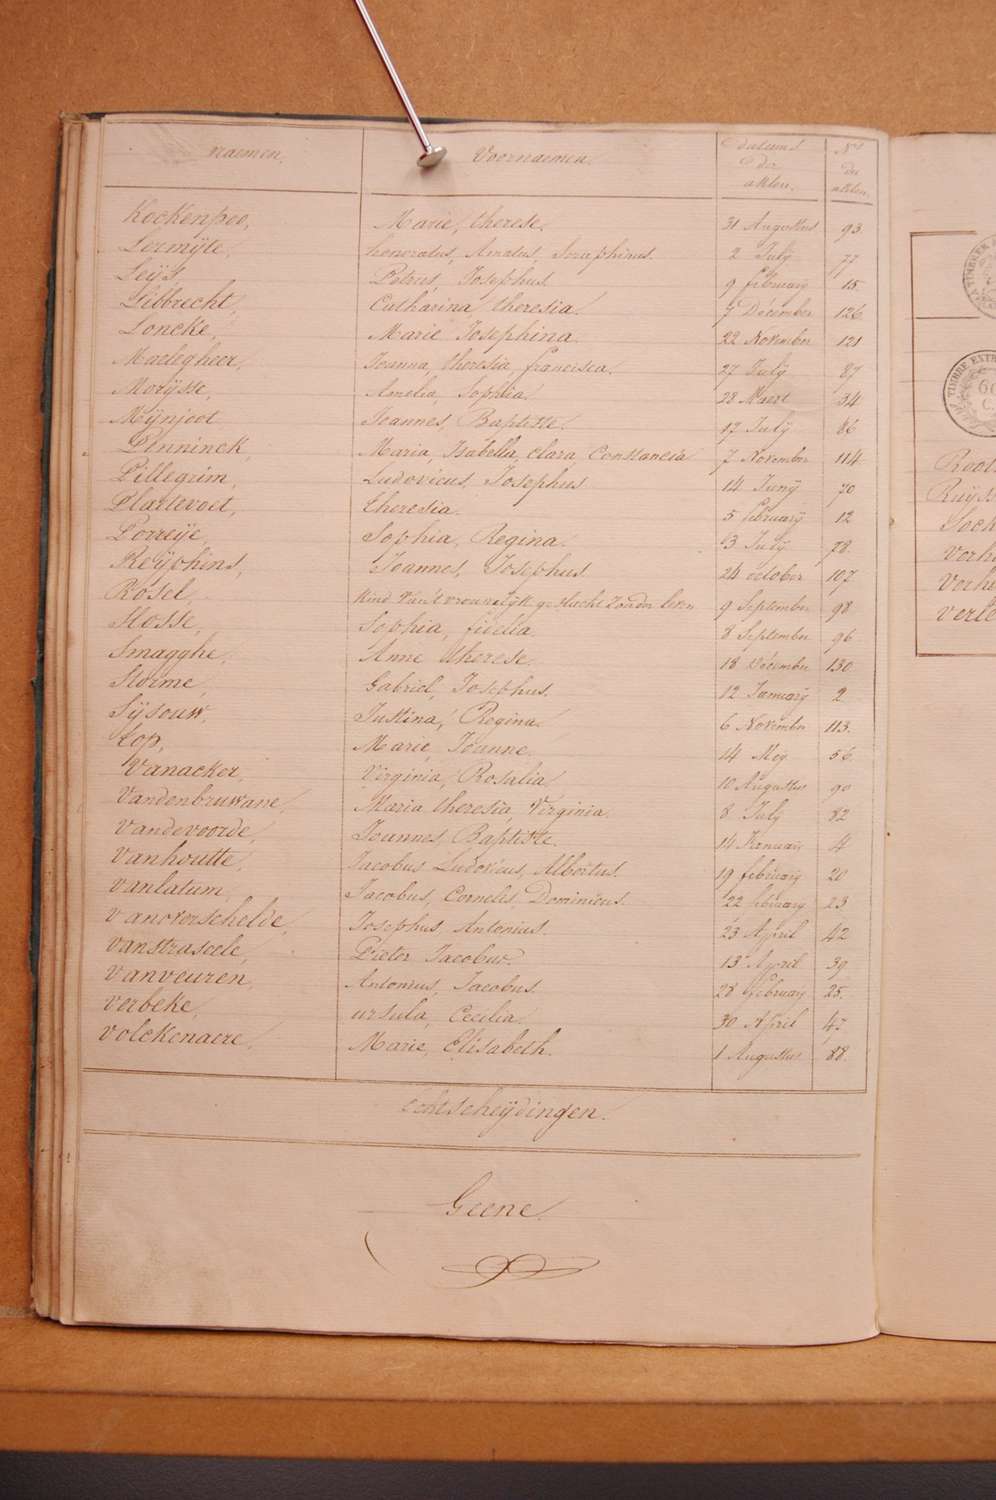 naemen. Voornaemen. datums der akten. Nrs der akten.
Kockenpoo, Marie, therese. 31 Augustus 93.
Lermÿte, honoratus, Amatus, Seraphinus. 2 Julÿ 77
Leÿs Petrus, Josephus 9 februarÿ 15.
Libbrecht, Catharina, theresia. 7 Décember 126
Loncke, Marie Josephina. 22 November 121
Maelegheer, Joanna, theresia, francisca. 27 Julÿ 87
Morÿsse, Amelia, Sophia. 28 Maert 34
Mÿnjoot Joannes, Baptiste. 17 Julÿ 86
Penninck, Maria, Isabella, Clara, Constancia 7 November 114
Pillegrim, Ludovicus, Josephus 14 Junÿ 70
Plaetevoet, theresia. 5 februarÿ 12
Porreÿe, Sophia, Regina. 3 Julÿ 78.
Reÿphins, Joannes, Josephus 24 october 107
Rosel, Kind van't vrouwelÿk geslacht zonder leven 9 September 98
Slosse, Sophia, fidelia. 8 September 96
Smagghe, Anne therese. 18 Décember 130.
Storme, Gabriel, Josephus. 12 Januarÿ 2
Sÿsouw, Justina, Regina. 6 November 113.
top, Marie, Joanne. 14 Meÿ 56.
Vanacker, Virginia, Rosalia 10 Augustus 90
Vandenbruwane Maria theresia, Virginia. 8 July 82
Vandevoorde, Joannes, Baptiste. 14 Januarÿ 4
Vanhoutte, Jacobus Ludovicus, Albertus. 19 februarÿ 20
Vanlatum, Jacobus, Cornelis, Dominicus. 22 februarÿ 23
Vanoverschelde, Josephus, Antonius. 23 April 42
Vanstraseele, Pieter Jacobus. 13 April 39
Vanveuren, Antonius, Jacobus. 28 februarÿ 25.
Verbeke, ursula, Cecilia. 30 April 47
Volckenaere, Marie, Elisabeth. 1 Augustus 88.
échtscheÿdingen.
Geene.
TIMBRE EXTR